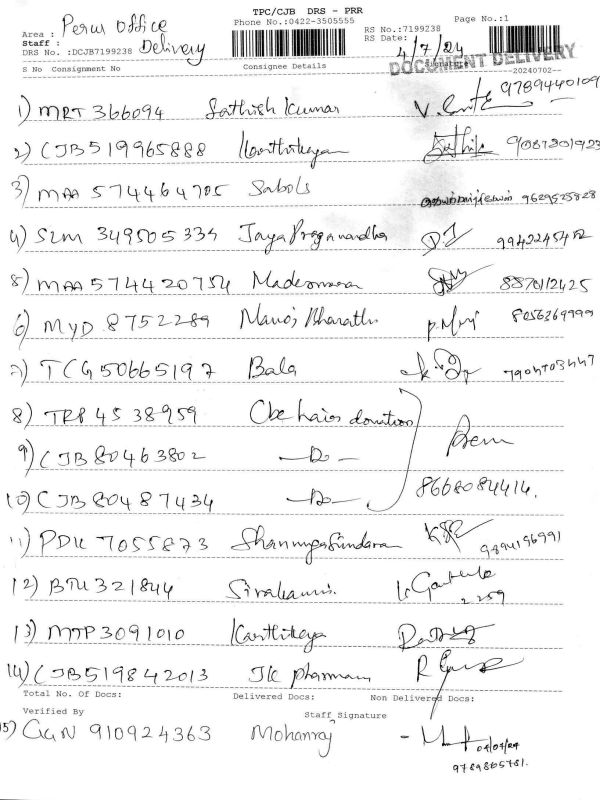 TPC/CJB DRS - PRR
Phone No.:0422-3505555
RS No.:7199238
Page No.:1
Area : Perur Office
Staff : Delivery
RS Date: 4/7/24
DRS No. :DCJB7199238
DOCUMENT DELIVERY
S No Consignment No Consignee Details Signature --20240702--
1) MRT 366094 Sathish Kumar 9789440109
2) CJB 519965888 Karthikeyan
3) MAA 574464705 Sabols 9629525828
4) SLM 349505334 JayaPraganandha 9942245452
5) MAA 574420754 8870112425
6) MYD 8752289 Manoj Bharathi 8056369999
7) TCG 50665197 Bala 7904703447
8) TRP 4538959 Cbe hair donation
9) CJB 80463802 —Do— Prem
10) CJB 80487434 —Do— 8668084414.
11) PDK 7055873 Shanmugasundaram 9894196991
12) BTU 321844 Sivakami.
13) MTP 3091010 Karthikeya
14) CJB 519842013 JK pharmacy
Total No. Of Docs: Delivered Docs: Non Delivered Docs:
Verified By Staff Signature
15) GGN 910924363 Mohanraj 04/07/24
9789865781.